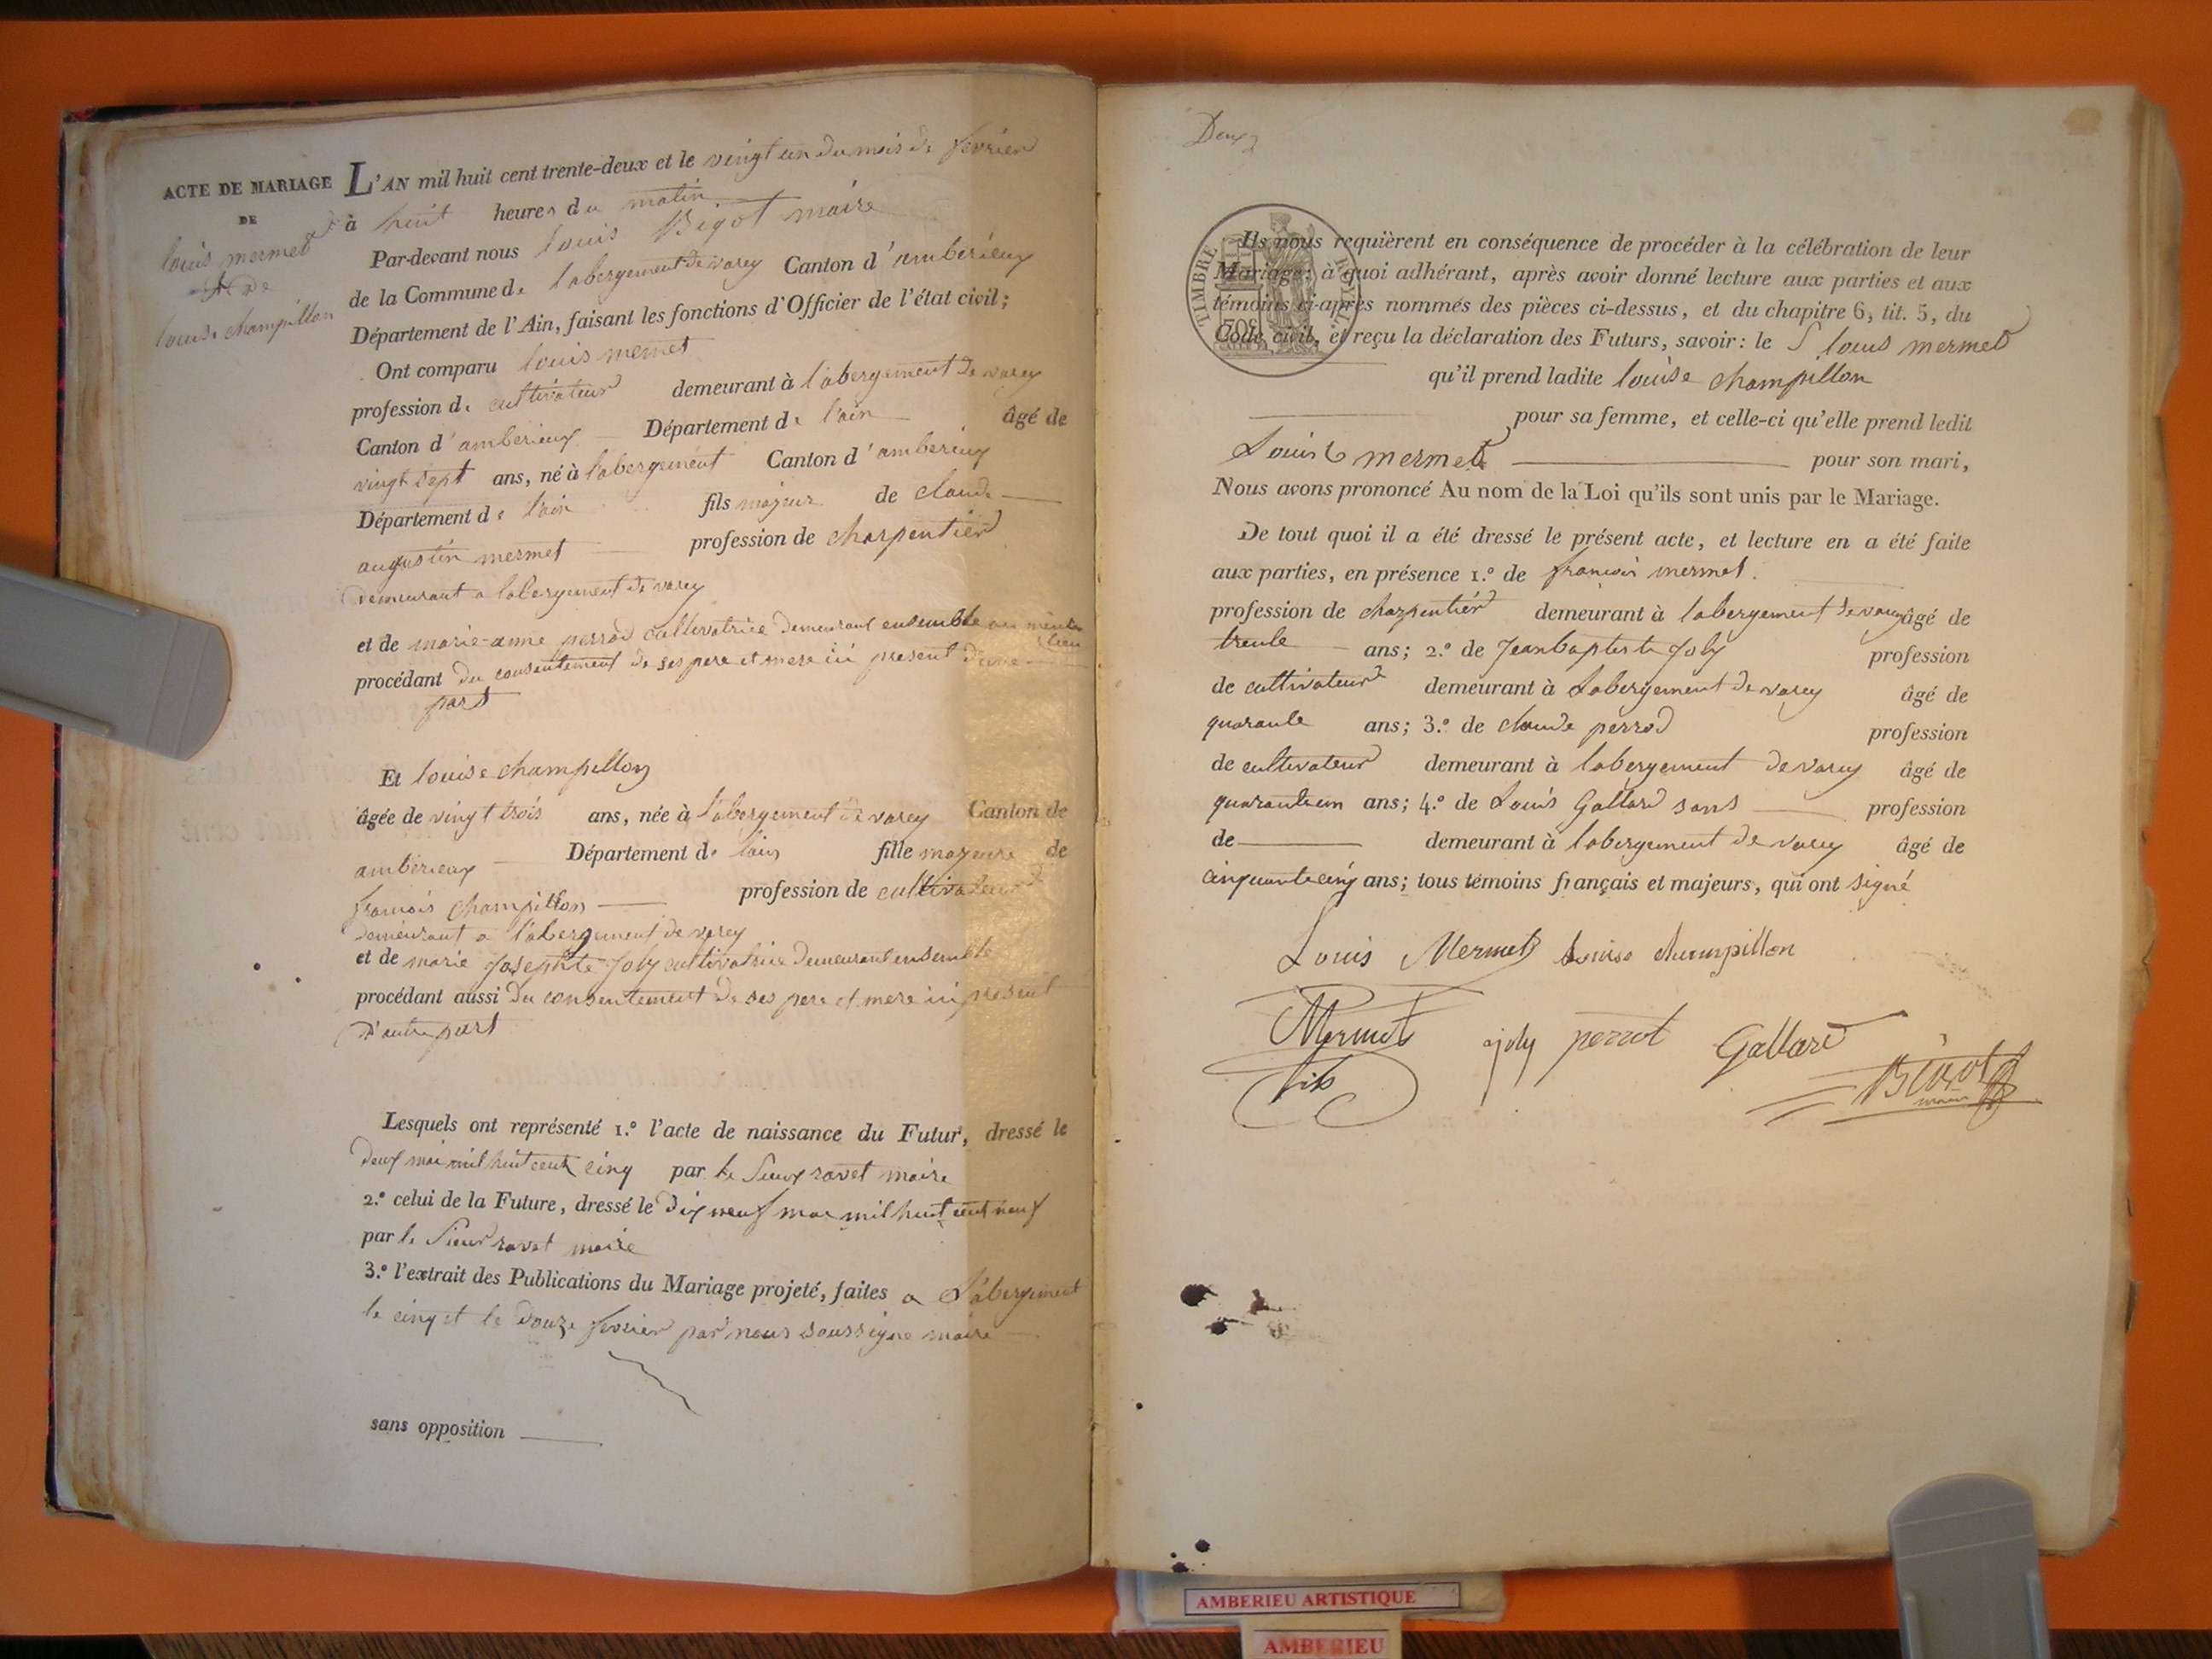 ACTE DE MARIAGE
DE
louis mermet
et de
louise champillon
L'AN mil huit cent trente-deux et le vingt un du mois de fevrier
à huit heures du matin
Par-devant nous louis Bigot maire
de la Commune de labergement de varey Canton d'amberieux
Département de l'Ain, faisant les fonctions d'Officier de l'état civil;
Ont comparu louis mermet
profession de cultivateur demeurant à labergement de varey
Canton d'amberieux Département de l'ain âgé de
vingt sept ans, né à labergement Canton d'amberieux
Département de l'ain fils majeur de claude
augustin mermet profession de charpentier
demeurant a labergement de varey
et de marie-anne perrod cultivatrice demeurant ensemble au même lieu
procédant du consentement de ses pere et mere ici present d'une
part
Et louise champillon
âgée de vingt trois ans, née à labergement de varey Canton de
amberieux Département de lain fille majeure de
francois champillon profession de cultivateur
demeurant a labergement de varey
et de marie Josephte Joly cultivatrice demeurant ensemble
procédant aussi du consentement de ses pere et mere ici present
d'autre part
Lesquels ont représenté 1.º l'acte de naissance du Futur, dressé le
deux mai mil huit cent cinq par le sieur ravet maire
2.º celui de la Future, dressé le dix neuf mai mil huit cent neuf
par le sieur ravet maire
3.º l'extrait des Publications du Mariage projeté, faites a Labergement
le cinq et le douze fevrier par nous soussigne maire
sans opposition
Deux
TIMBRE ROYAL
50
Ils nous requièrent en conséquence de procéder à la célébration de leur
Mariage: à quoi adhérant, après avoir donné lecture aux parties et aux
témoins ci-après nommés des pièces ci-dessus, et du chapitre 6, tit. 5, du
Code civil, et reçu la déclaration des Futurs, savoir: le S louis mermet
qu'il prend ladite louise champillon
pour sa femme, et celle-ci qu'elle prend ledit
Louis mermet pour son mari,
Nous avons prononcé Au nom de la Loi qu'ils sont unis par le Mariage.
De tout quoi il a été dressé le présent acte, et lecture en a été faite
aux parties, en présence 1.º de francois mermet
profession de charpentier demeurant à labergement de varey âgé de
trente ans; 2.º de Jean baptiste Joly profession
de cultivateur demeurant à Labergement de varey âgé de
quarante ans; 3.º de claude perrod profession
de cultivateur demeurant à labergement de varey âgé de
quarante un ans; 4.º de Louis Gallard sans profession
de demeurant à labergement de varey âgé de
cinquante cinq ans; tous témoins français et majeurs, qui ont signé
Louis Mermet Louise champillon
Mermet joly perrot Gallard
fils Bigot
maire
AMBERIEU ARTISTIQUE
AMBERIEU